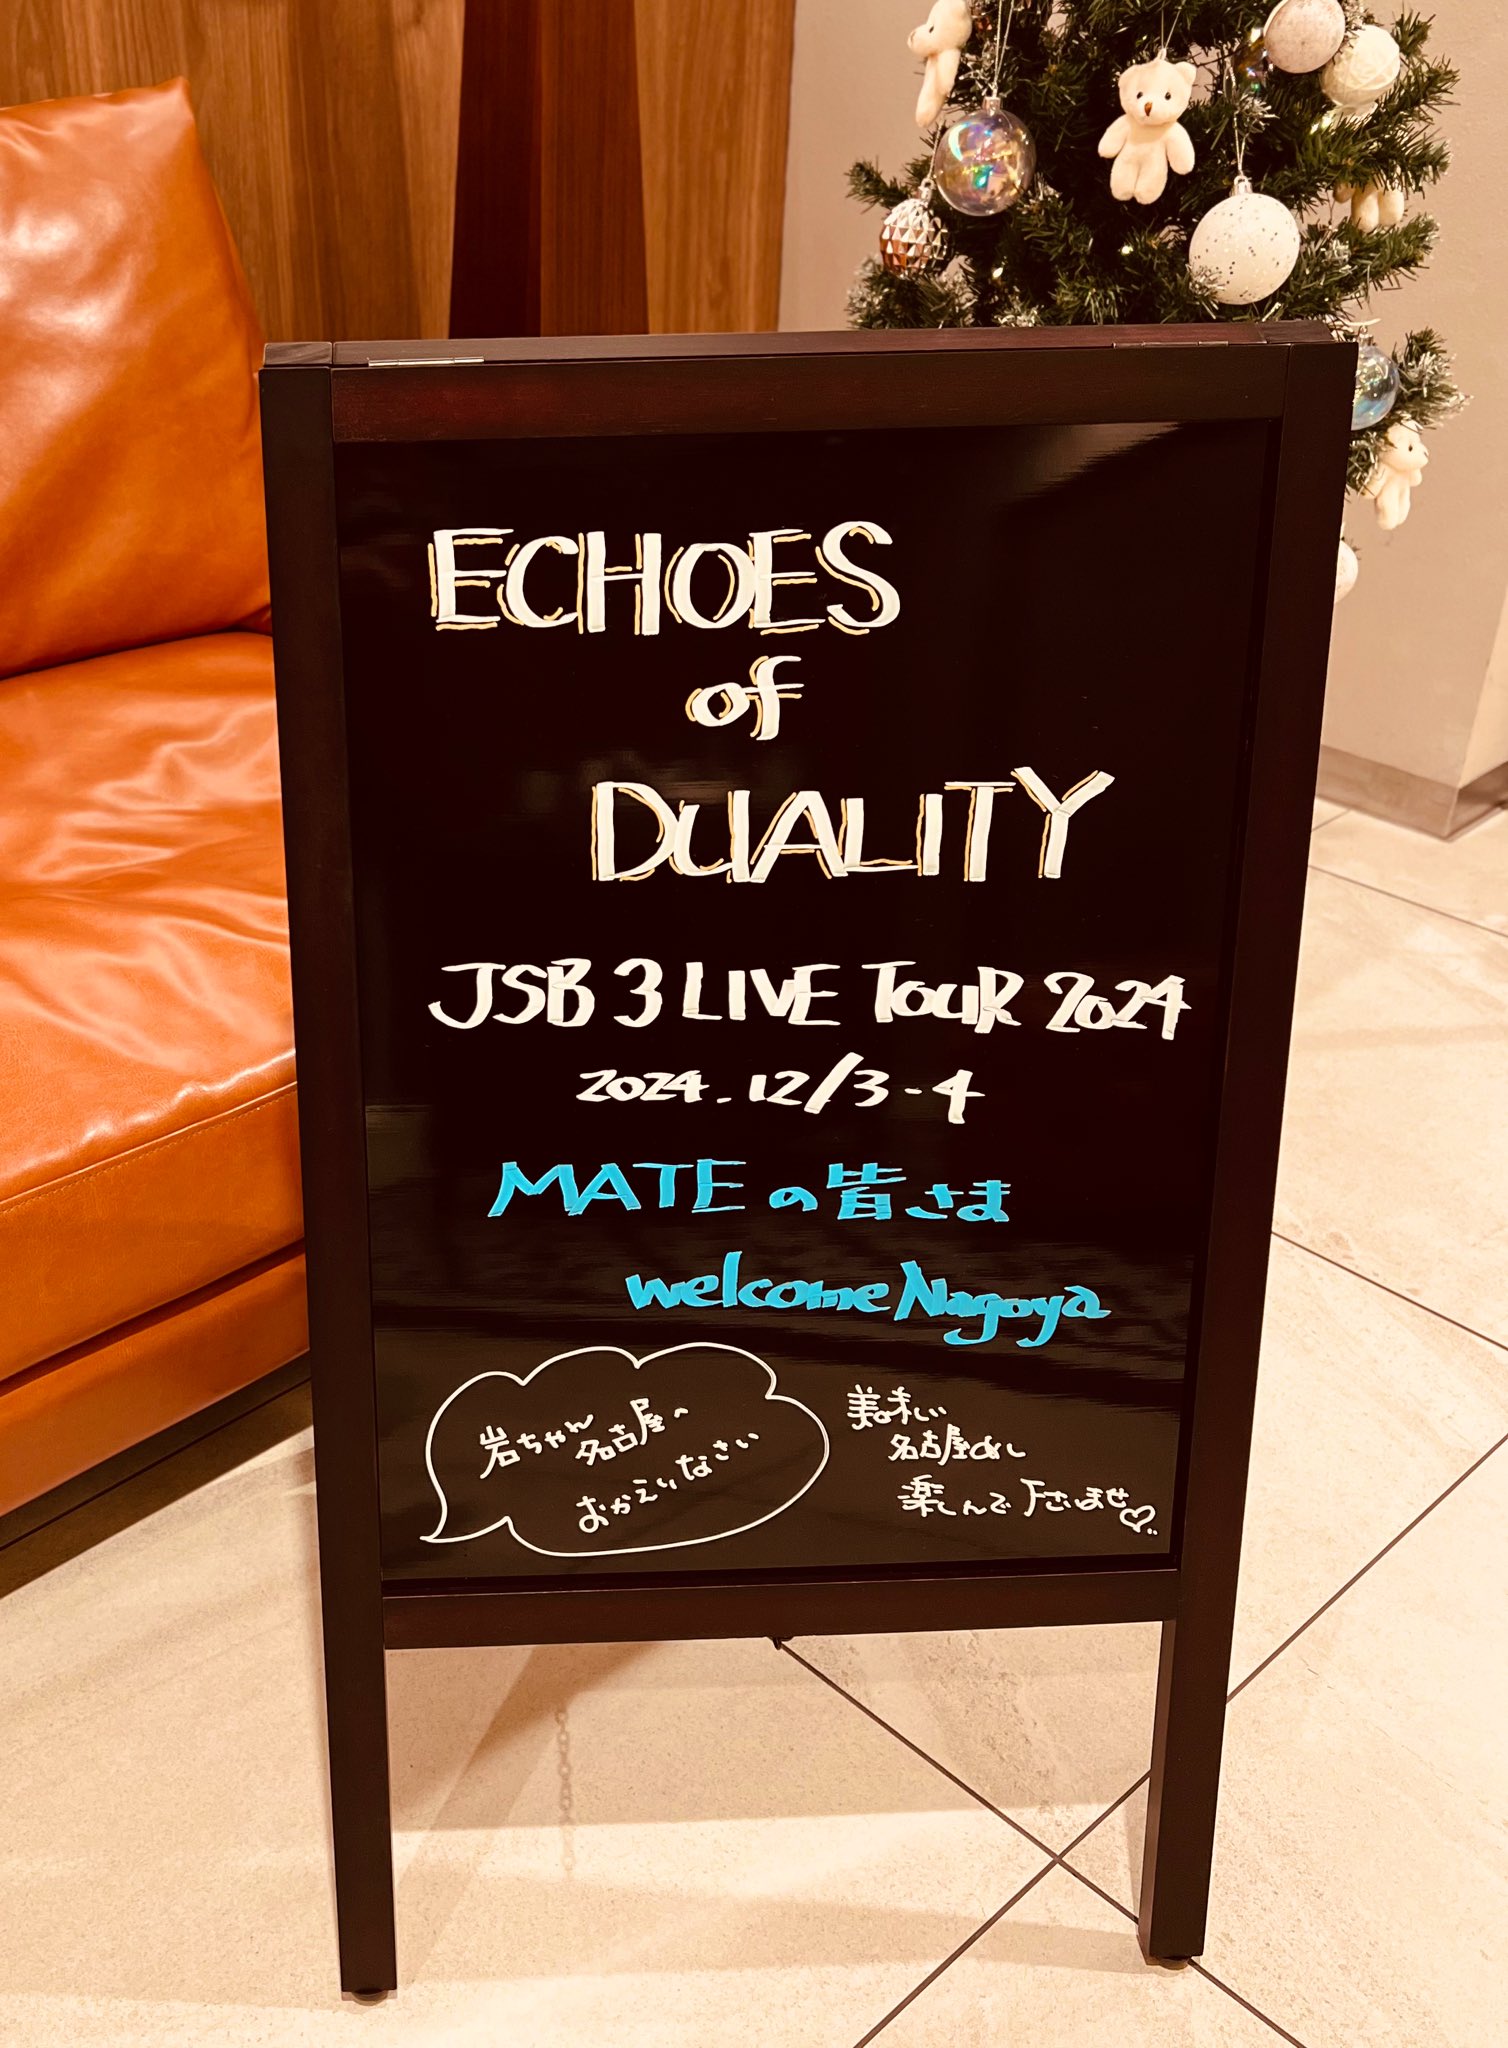 ECHOES
of
DUALITY
JSB 3 LIVE TOUR 2024
2024.12/3-4
MATEの皆さま
welcome Nagoya
岩ちゃん
名古屋へ
おかえりなさい
美味しい
名古屋めし
楽しんで下さいませ♡